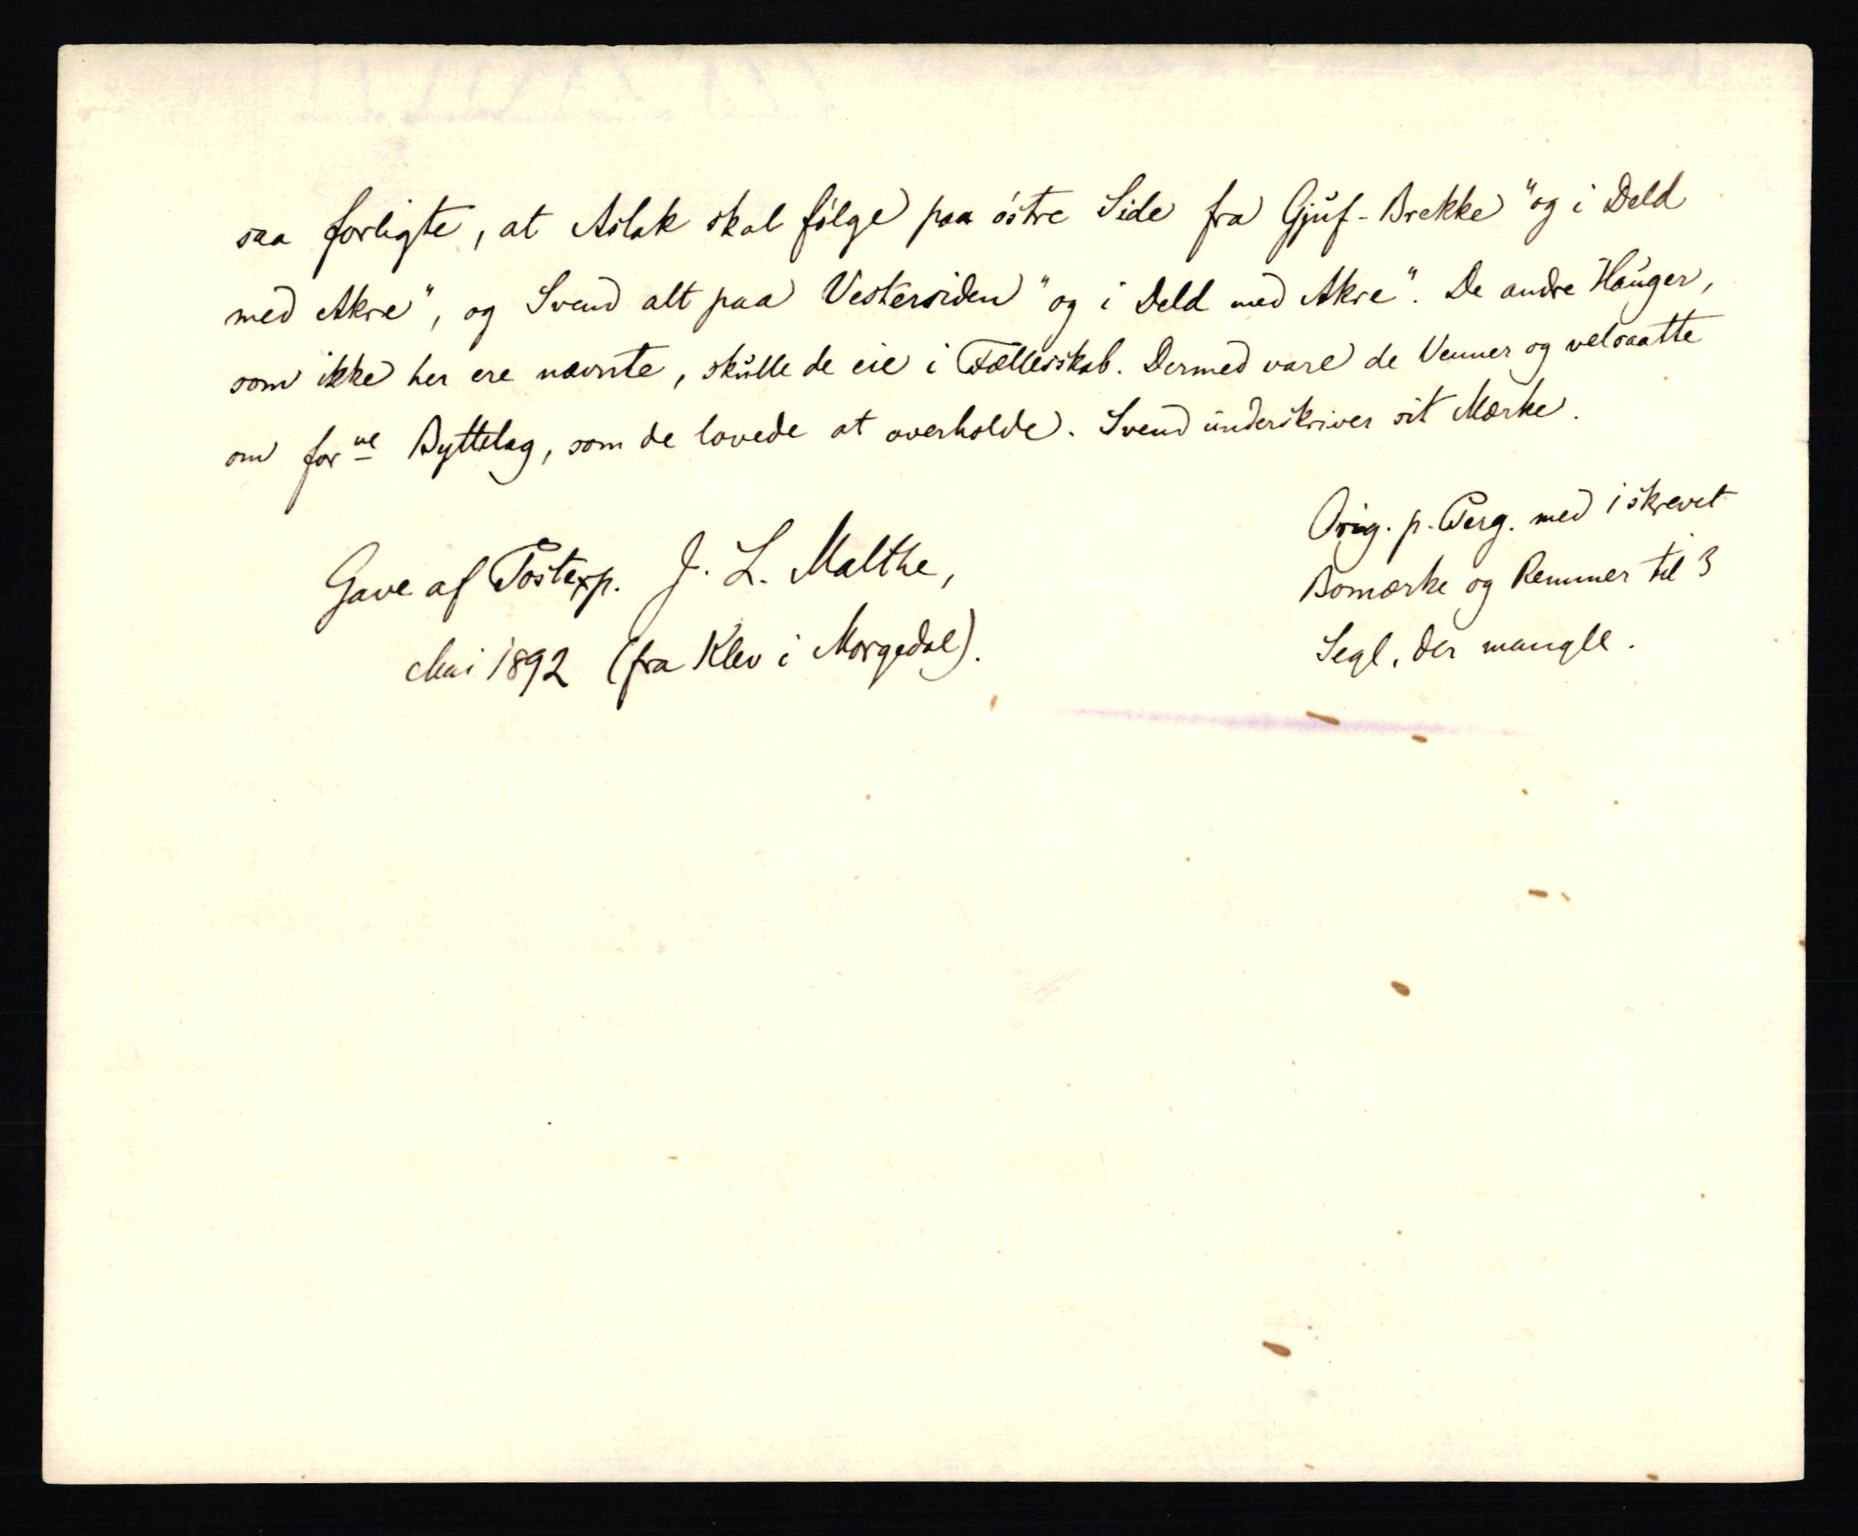 saa forligte, at Aslak skal følge paa östre Side fra Gjuf-Brekke "og i Deld
med Akre", og Svend alt paa Vestersiden "og i Deld med Akre". De andre Hauger,
som ikke her ere nævnte, skulle de eie i Fællesskab. Dermed vare de Venner og velsaatte
om for<sup>ne</sup> Byttelag, som de lovede at overholde. Svend underskriver sit Mærke.
Orig. p. Perg. med iskrevet
Bomærke og Remmer til 3
Segl, der mangle.
Gave af Postexp. J. L. Malthe,
Mai 1892 (fra Klev i Morgedal).